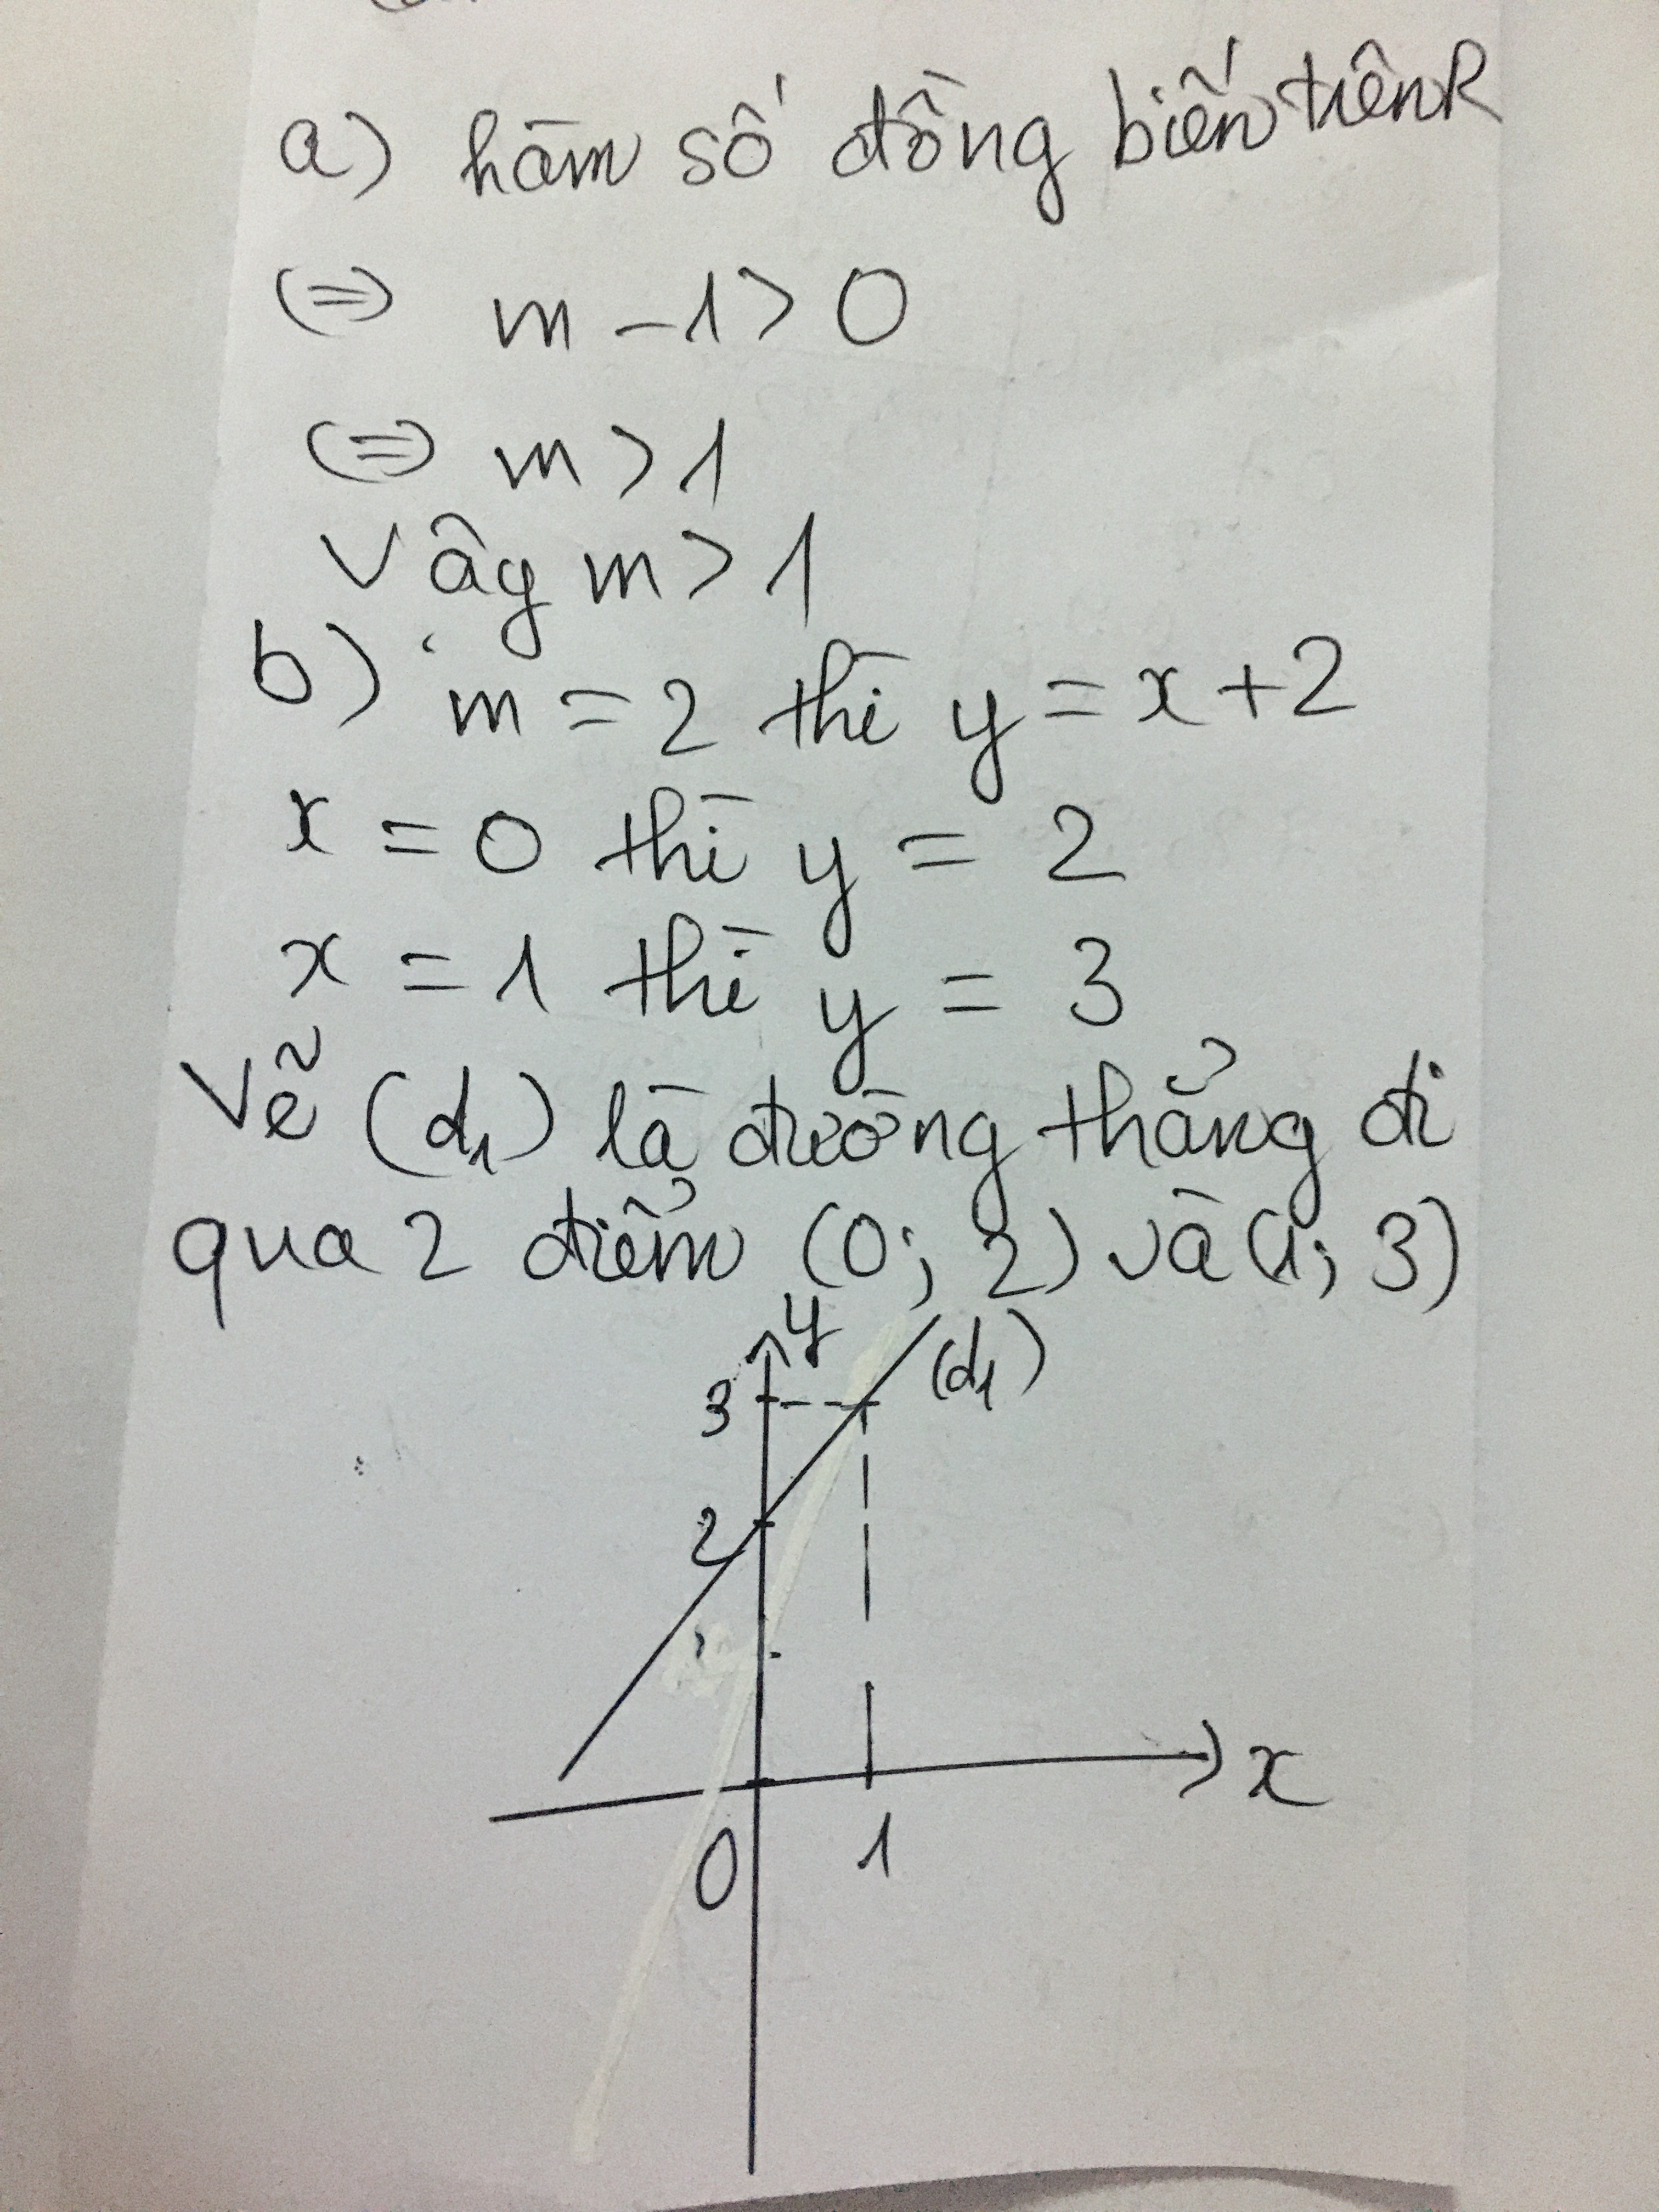 a) hàm số đồng biến trên R
(=) m - 1 > 0
(=) m > 1
Vậy m > 1
b) m = 2 thì y = x + 2
x = 0 thì y = 2
x = 1 thì y = 3
Vẽ (d₁) là đường thẳng đi
qua 2 điểm (0; 2) và (1; 3)
y
(d₁)
3
2
x
0
1